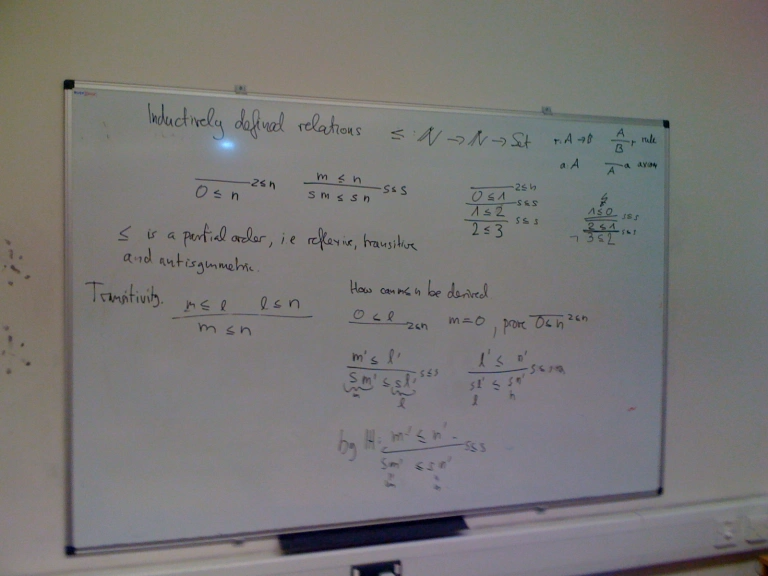 Inductively defined relations ≤ : ℕ → ℕ → Set
r : A → B A / B r rule
a : A / A a axiom
/ 0 ≤ n z≤n
m ≤ n / sm ≤ sn s≤s
/ 0 ≤ 1 z≤n
1 ≤ 2 s≤s
2 ≤ 3 s≤s
1 ≤ 0
2 ≤ 1 s≤s
¬ 3 ≤ 2 s≤s
≤ is a partial order, i.e reflexive, transitive
and antisymmetric.
Transitivity. m ≤ l l ≤ n / m ≤ n
How can m≤n be derived
0 ≤ l z≤n m = 0, prove 0 ≤ n z≤n
m' ≤ l' / sm' ≤ sl' s≤s
m l
l' ≤ n' / sl' ≤ sn'
l n
by IH: m' ≤ n' / sm' ≤ sn' s≤s